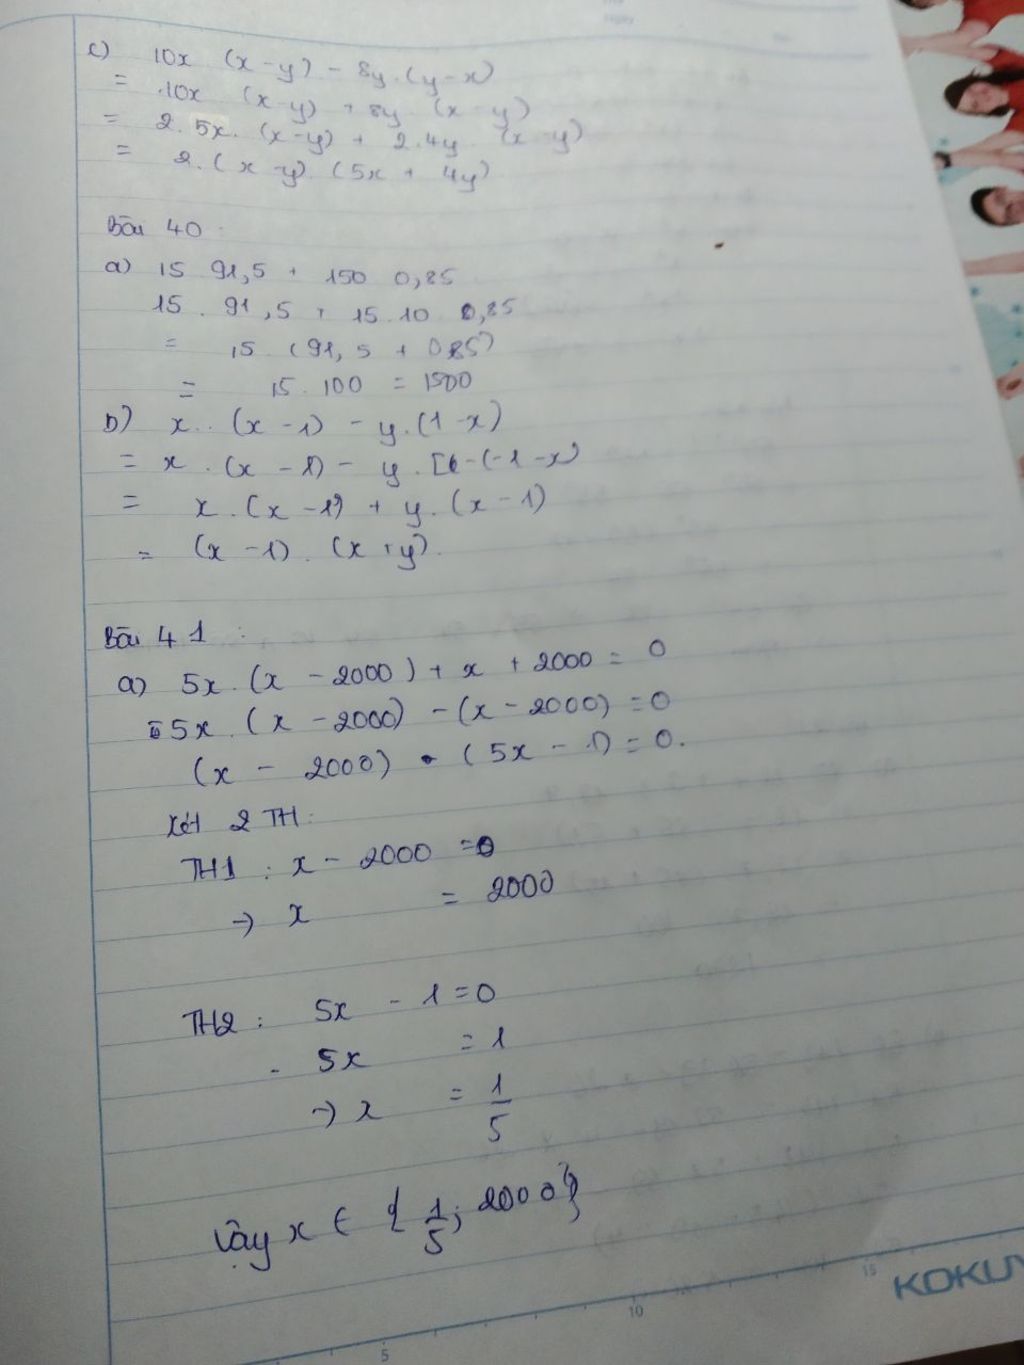 c) 10x (x - y) - 8y.(y - x)
= 10x (x - y) + 8y (x - y)
= 2. 5x. (x - y) + 2.4y (x - y)
= 2.(x - y) (5x + 4y)
Bài 40
a) 15 91,5 + 150 0,85
15 . 91,5 + 15.10 0,85
= 15 (91,5 + 0,85)
= 15.100 = 1500
b) x. (x - 1) - y.(1 - x)
= x . (x - 1) - y . [-(-1 - x)
= x.(x - 1) + y.(x - 1)
= (x - 1) . (x + y).
Bài 41 :
a) 5x.(x - 2000) + x + 2000 = 0
5x.(x - 2000) - (x - 2000) = 0
(x - 2000) . (5x - 1) = 0.
Xét 2 TH:
TH1 : x - 2000 = 0
→ x = 2000
TH2 : 5x - 1 = 0
- 5x = 1
→ x = 1/5
Vậy x ∈ {1/5; 2000}
5
10
15